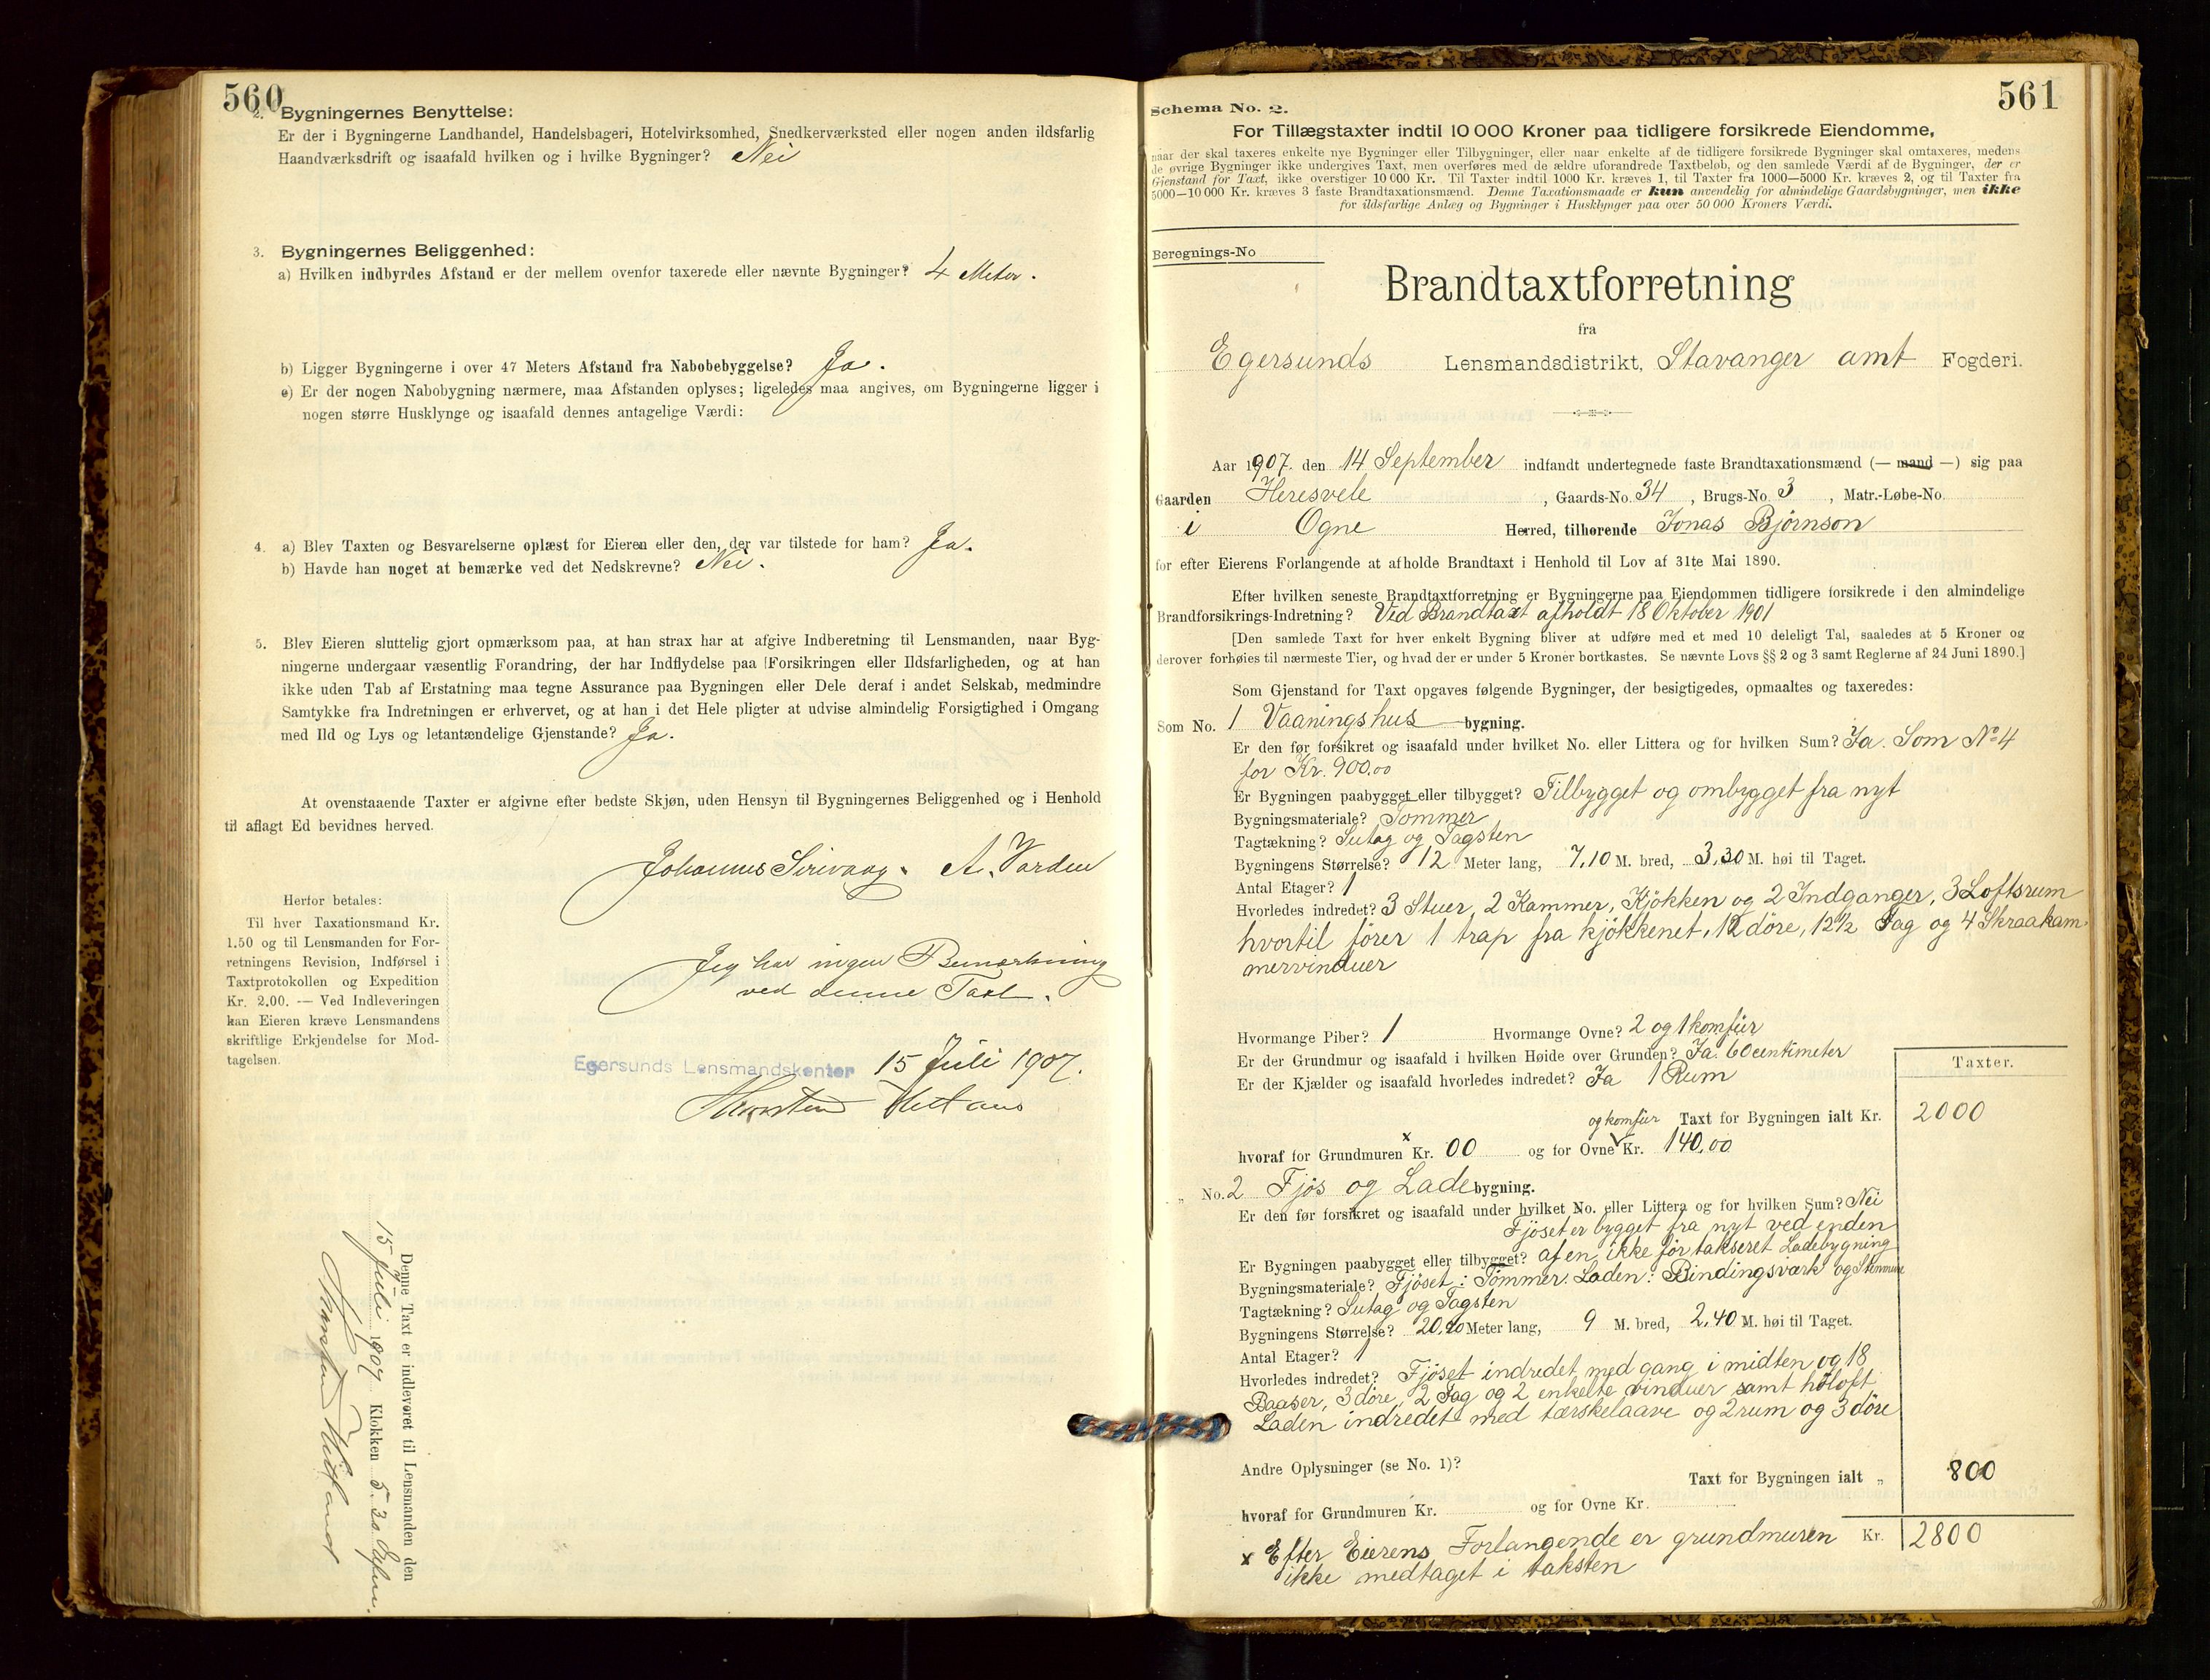 560
2. Bygningernes Benyttelse:
Er der i Bygningerne Landhandel, Handelsbageri, Hotelvirksomhed, Snedkerværksted eller nogen anden ildsfarlig
Haandværksdrift og isaafald hvilken og i hvilke Bygninger? Nei
3. Bygningernes Beliggenhed:
a) Hvilken indbyrdes Afstand er der mellem ovenfor taxerede eller nævnte Bygninger? 4 Meter.
b) Ligger Bygningerne i over 47 Meters Afstand fra Nabobebyggelse? Ja.
c) Er der nogen Nabobygning nærmere, maa Afstanden oplyses; ligeledes maa angives, om Bygningerne ligger i
nogen større Husklynge og isaafald dennes antagelige Værdi:
4. a) Blev Taxten og Besvarelserne oplæst for Eieren eller den, der var tilstede for ham? Ja.
b) Havde han noget at bemærke ved det Nedskrevne? Nei.
5. Blev Eieren sluttelig gjort opmærksom paa, at han strax har at afgive Indberetning til Lensmanden, naar Byg-
ningerne undergaar væsentlig Forandring, der har Indflydelse paa Forsikringen eller Ildsfarligheden, og at han
ikke uden Tab af Erstatning maa tegne Assurance paa Bygningen eller Dele deraf i andet Selskab, medmindre
Samtykke fra Indretningen er erhvervet, og at han i det Hele pligter at udvise almindelig Forsigtighed i Omgang
med Ild og Lys og letantændelige Gjenstande? Ja.
At ovenstaaende Taxter er afgivne efter bedste Skjøn, uden Hensyn til Bygningernes Beliggenhed og i Henhold
til aflagt Ed bevidnes herved.
Johannes Sirivaag. A. Varden
Herfor betales:
Til hver Taxationsmand Kr.
1.50 og til Lensmanden for For-
retningens Revision, Indførsel i
Taxtprotokollen og Expedition
Kr. 2.00. — Ved Indleveringen
kan Eieren kræve Lensmandens
skriftlige Erkjendelse for Mod-
tagelsen.
Jeg har ingen Bemærkning
ved denne Taxt.
Egersunds Lensmandskontor 15 Juli 1907.
Denne Taxt er indleveret til Lensmanden den
15 Juli 1907 Klokken 5.30
561
Schema No. 2.
For Tillægstaxter indtil 10 000 Kroner paa tidligere forsikrede Eiendomme,
naar der skal taxeres enkelte nye Bygninger eller Tilbygninger, eller naar enkelte af de tidligere forsikrede Bygninger skal omtaxeres, medens
de øvrige Bygninger ikke undergives Taxt, men overføres med de ældre uforandrede Taxtbeløb, og den samlede Værdi af de Bygninger, der er
Gjenstand for Taxt, ikke overstiger 10 000 Kr. Til Taxter indtil 1000 Kr. kræves 1, til Taxter fra 1000—5000 Kr. kræves 2, og til Taxter fra
5000—10 000 Kr. kræves 3 faste Brandtaxationsmænd. Denne Taxationsmaade er kun anvendelig for almindelige Gaardsbygninger, men ikke
for ildsfarlige Anlæg og Bygninger i Husklynger paa over 50 000 Kroners Værdi.
Beregnings-No
Brandtaxtforretning
fra
Egersunds Lensmandsdistrikt, Stavanger amt Fogderi.
Aar 1907. den 14 September indfandt undertegnede faste Brandtaxationsmænd (— mand —) sig paa
Gaarden Heresvele, Gaards-No. 34, Brugs-No. 3, Matr.-Løbe-No.
i Ogne Herred, tilhørende Jonas Bjørnson
for efter Eierens Forlangende at afholde Brandtaxt i Henhold til Lov af 31te Mai 1890.
Efter hvilken seneste Brandtaxtforretning er Bygningerne paa Eiendommen tidligere forsikrede i den almindelige
Brandforsikrings-Indretning? Ved Brandtaxt afholdt 18 Oktober 1901
[Den samlede Taxt for hver enkelt Bygning bliver at udføre med et med 10 deleligt Tal, saaledes at 5 Kroner og
derover forhøies til nærmeste Tier, og hvad der er under 5 Kroner bortkastes. Se nævnte Lovs §§ 2 og 3 samt Reglerne af 24 Juni 1890.]
Som Gjenstand for Taxt opgaves følgende Bygninger, der besigtigedes, opmaaltes og taxeredes:
Som No. 1 Vaaningshus bygning.
Er den før forsikret og isaafald under hvilket No. eller Littera og for hvilken Sum? Ja. Som No 4
for Kr. 900.00
Er Bygningen paabygget eller tilbygget? Tilbygget og ombygget fra nyt
Bygningsmateriale? Tømmer
Tagtækning? Sutag og Tagsten
Bygningens Størrelse? 12 Meter lang, 7,10 M. bred, 3,30 M. høi til Taget.
Antal Etager? 1
Hvorledes indredet? 3 Stuer, 2 Kammer, Kjøkken og 2 Indganger, 3 Loftsrum
hvortil fører 1 trap fra kjøkkenet, 12 døre, 12½ Fag og 4 Skraakam-
mervinduer
Hvormange Piber? 1 Hvormange Ovne? 2 og 1 komfür
Er der Grundmur og isaafald i hvilken Høide over Grunden? Ja. 60 centimeter
Er der Kjælder og isaafald hvorledes indredet? Ja 1 Rum
Taxter.
og komfür Taxt for Bygningen ialt Kr. 2000
hvoraf for Grundmuren x Kr. 00 og for Ovne Kr. 140,00
„ No. 2 Fjøs og Lade bygning.
Er den før forsikret og isaafald under hvilket No. eller Littera og for hvilken Sum? Nei
Fjøset er bygget fra nyt ved enden
Er Bygningen paabygget eller tilbygget? af en ikke før takseret Ladebygning
Bygningsmateriale? Fjøset: Tømmer. Laden: Bindingsværk og Stenmure
Tagtækning? Sutag og Tagsten
Bygningens Størrelse? 20,20 Meter lang, 9 M. bred, 2,40 M. høi til Taget.
Antal Etager? 1
Hvorledes indredet? Fjøset indredet med gang i midten og 18
Baaser, 3 døre, 2 Fag og 2 enkelte vinduer samt høloft
Laden indredet med tærskelaave og 2 rum og 3 døre
Andre Oplysninger (se No. 1)?
Taxt for Bygningen ialt „ 800
hvoraf for Grundmuren Kr. og for Ovne Kr.
Kr. 2800
x Efter Eierens Forlangende er grundmuren
ikke medtaget i taksten